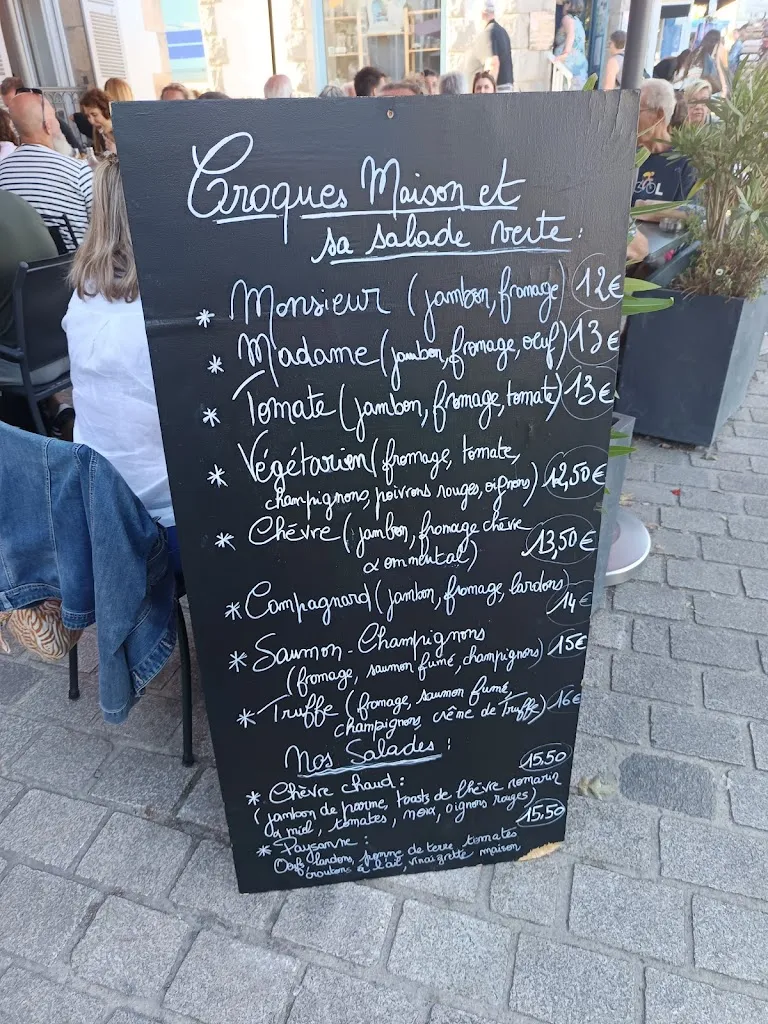 Croques Maison et
sa salade verte :
* Monsieur (jambon, fromage) 12€
* Madame (jambon, fromage, oeuf) 13€
* Tomate (jambon, fromage, tomate) 13€
* Végétarien (fromage, tomate,
champignons, poivrons rouges, oignons) 12,50€
* Chèvre (jambon, fromage chèvre
& emmental) 13,50€
* Campagnard (jambon, fromage, lardons) 14€
* Saumon-Champignons
(fromage, saumon fumé, champignons) 15€
* Truffe (fromage, saumon fumé,
champignons, crême de Truffe) 16€
Nos Salades :
* Chèvre chaud : 15.50
(jambon de parme, toasts de chèvre romarin
& miel, tomates, noix, oignons rouges) 15.50
* Paysanne :
Oeufs, lardons, pomme de terre, tomates
croutons à l'ail, vinaigrette maison